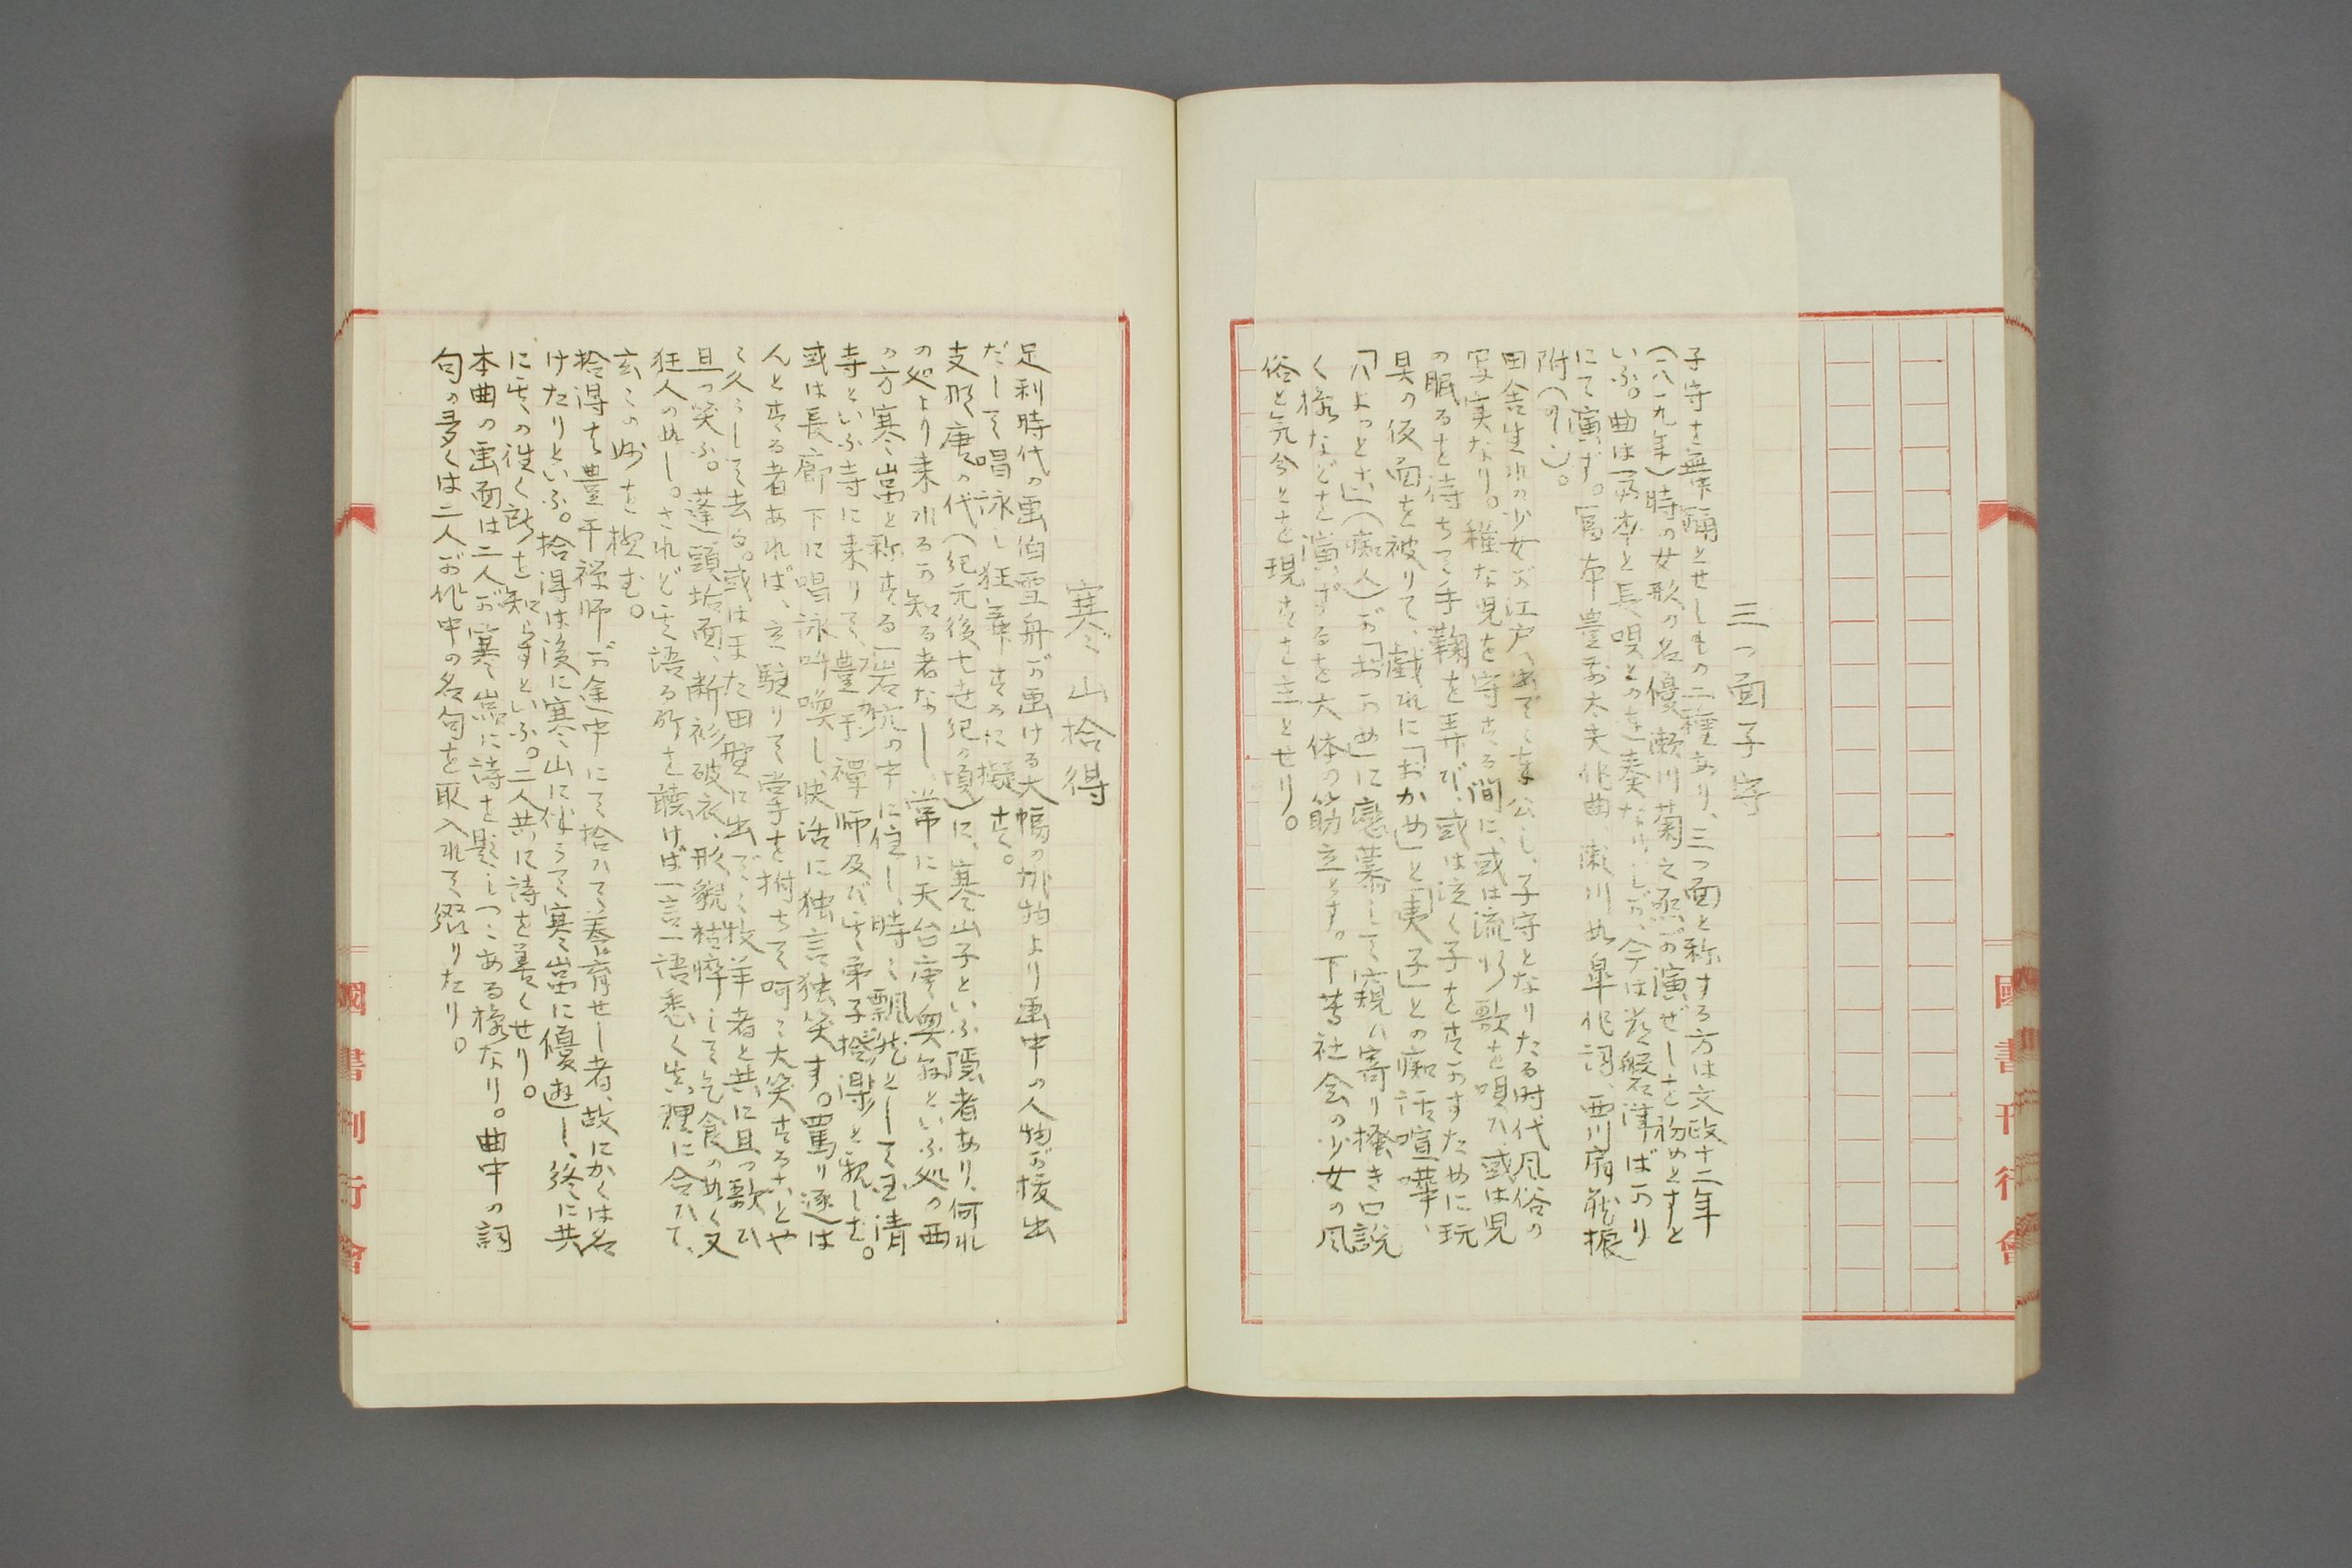 三つ面子守
子守を舞踊とせしもの二種あり、三つ面と称する方は文政十二年
(一八二九年)時の女形の名優瀬川菊之丞の演ぜしを初めとすと
いふ。曲は富本と長唄とのを奏なりしが、今は常磐津ばかり
にて演ず。富本豊前太夫作曲、瀬川如皐作詞、西川扇蔵振
附(のし)。
田舎生れの少女が江戸へ出でて奉公し、子守となりたる時代風俗の
写実なり。稚な児を守する間に、或は流行歌を唄ひ、或は児
の眠るを待ちて手鞠を弄び、或は泣く子をすかすために玩
具の仮面を被りて、戯れに「おかめ」と「夷子」との痴話喧嘩、
「ひよつとこ」(痴人)が「おかめ」に戀慕して窺ひ寄り掻き口説
く様などを演ずるを大体の筋立とす。下層社会の少女の風
俗と気合とを現すを主とせり。
寒山拾得
足利時代の画伯雪舟が画ける大幅の掛物より画中の人物が抜出
だして唱詠し狂舞するに擬す。
支那唐の代(紀元後七世紀の頃)に、寒山子といふ隠者あり、何れ
の処より来れるか知る者なし、常に天台唐興縣といふ処の西
の方寒嵓と称する一岩窟の中に住し、時々飄然として国清
寺といふ寺に来りて、豊干禅師及び其弟子拾得と親しむ。
或は長廊下に唱詠叫喚し、快活に独言独笑す。罵り逐は
んとする者あれば、立駐りて掌を拊ちて呵々大笑することや
や久うして去る。或はまた田野に出でて牧羊者と共に且つ歌ひ
且つ笑ふ。蓬頭垢面、断衫破衣、形貌枯悴して乞食の如く又
狂人の如し。されど其語る所を聴けば一言一語悉く其理に合ひて、
玄々の妙を極む。
拾得も豊干禅師が途中にて拾ひて養育せし者、故にかくは名
けたりといふ。拾得は後に寒山に伴うて寒嵓に優遊し、終に共
に其の往く所を知らずといふ。二人共に詩を善くせり。
本曲の画面は二人が寒嵓に詩を題しつゝある様なり。曲中の詞
句の多くは二人が作中の名句を取入れて綴りたり。
國書刊行會
國書刊行會